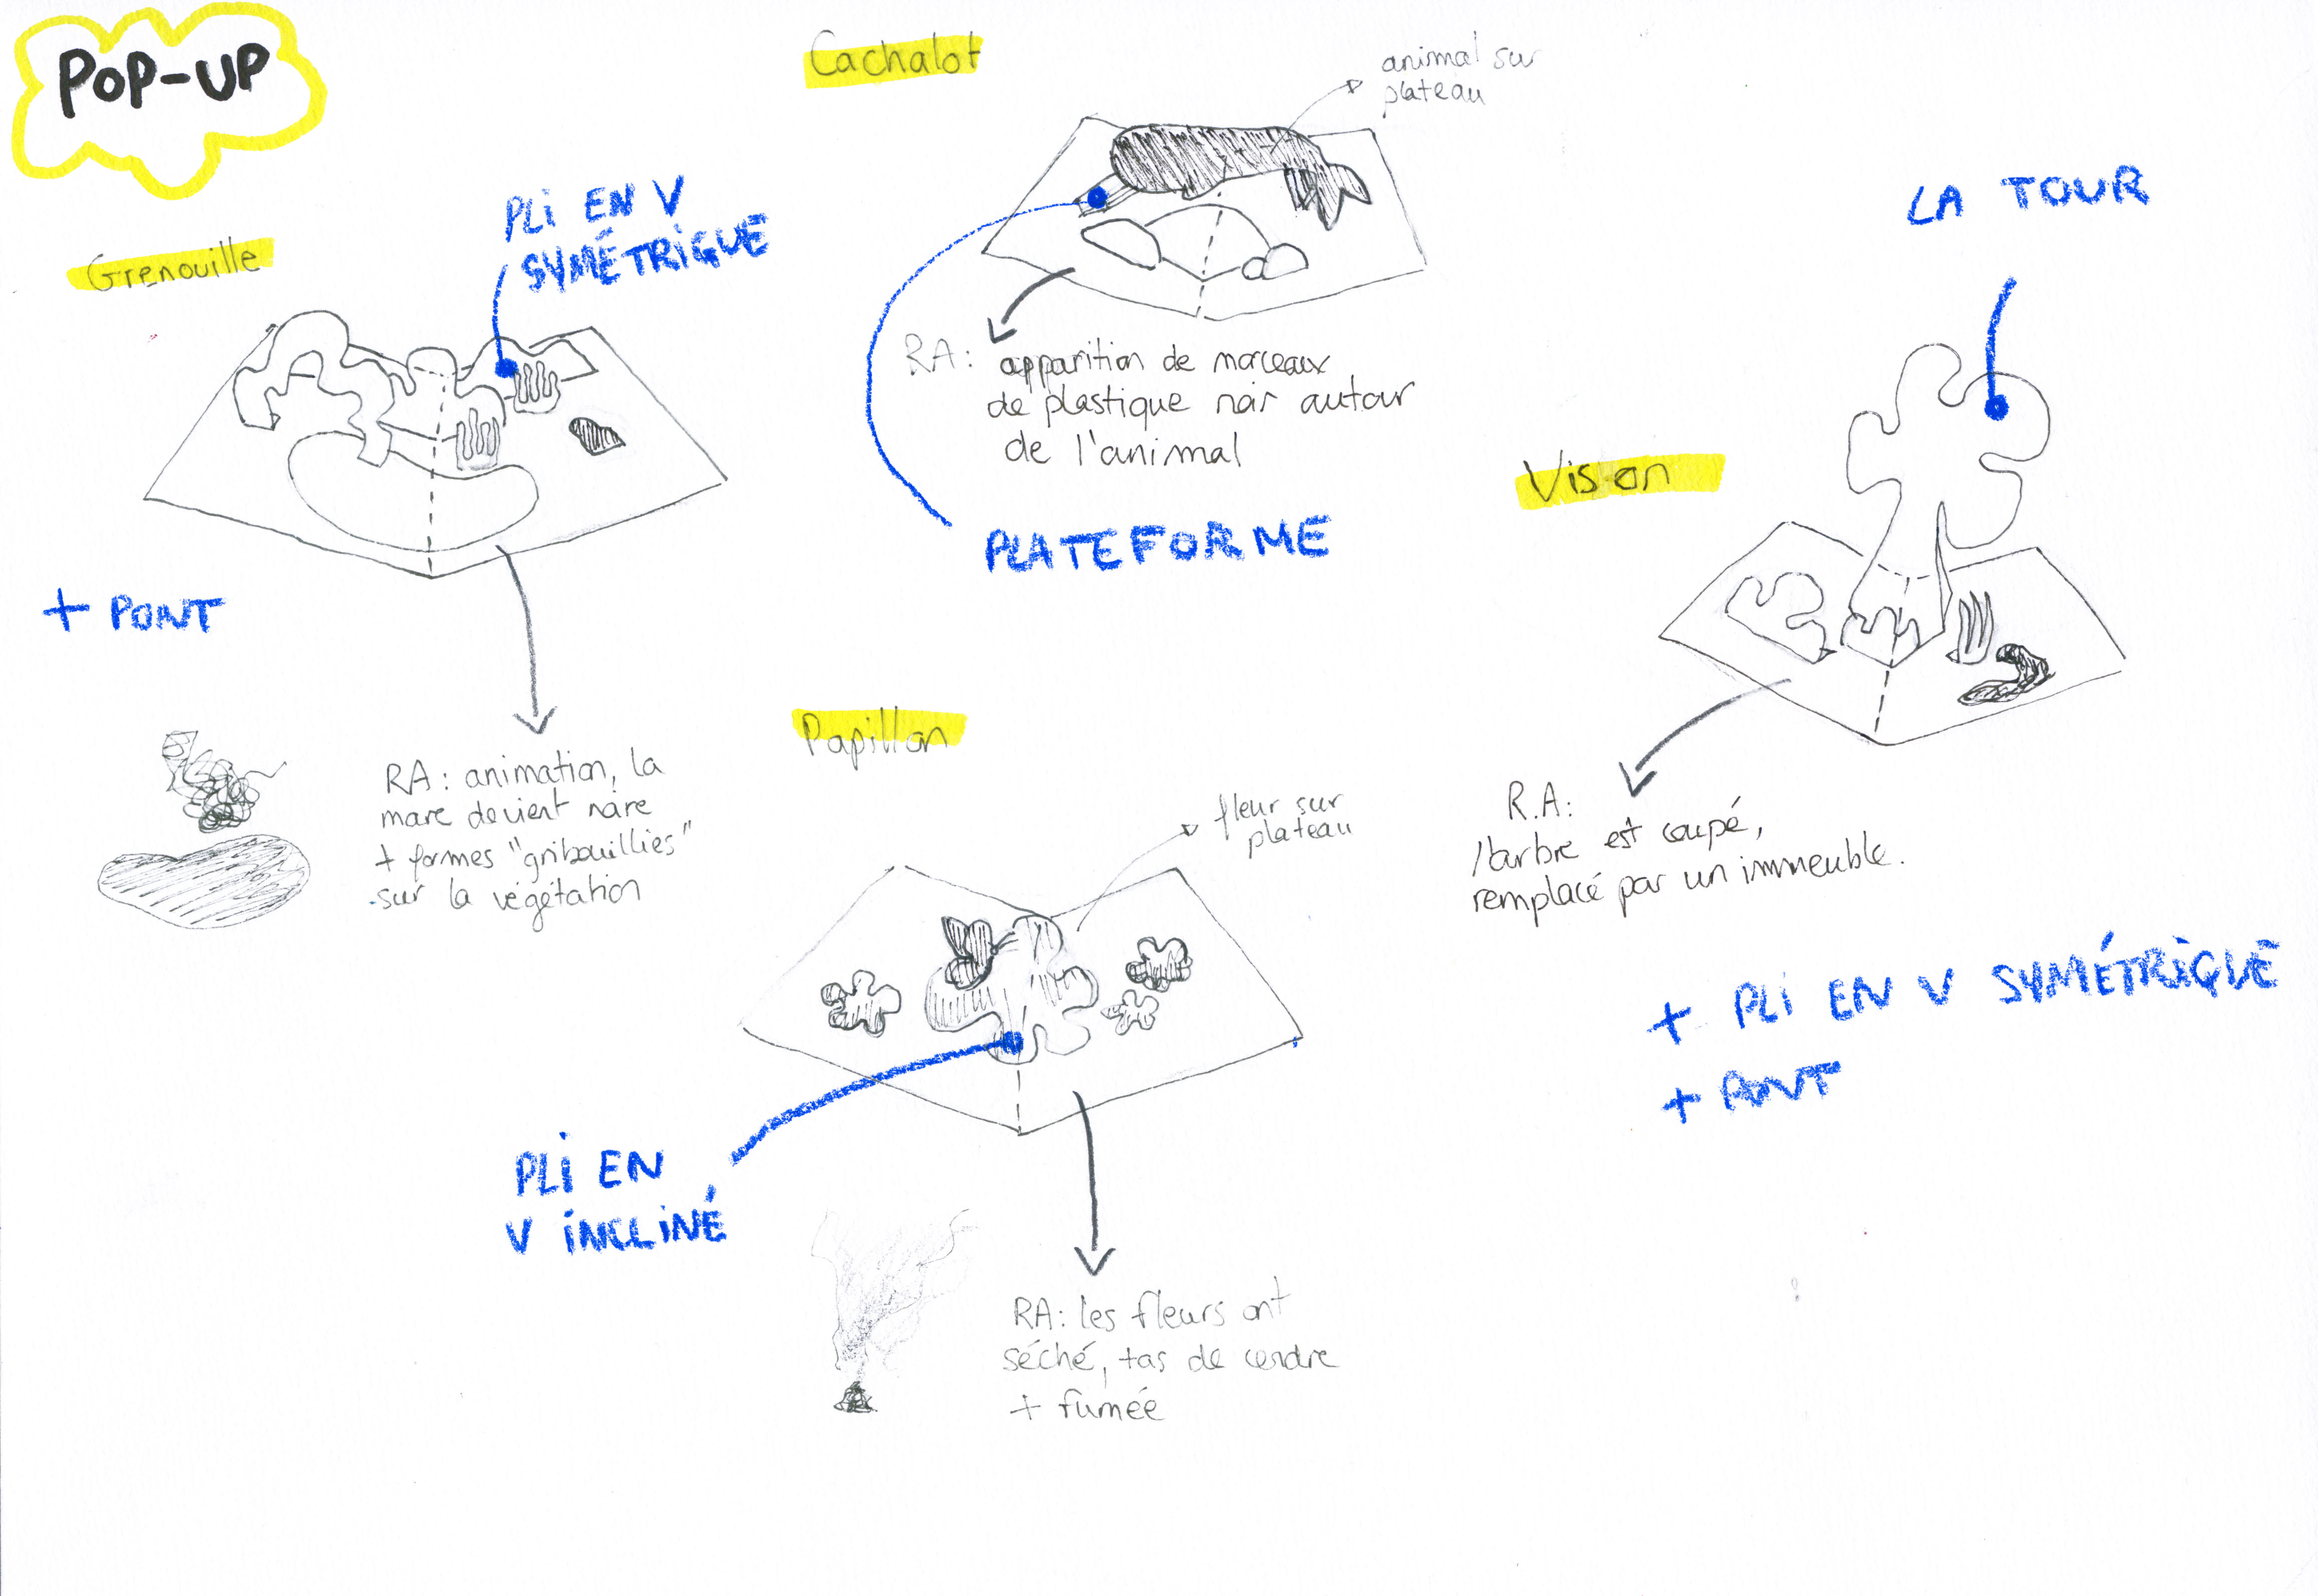 POP-UP
Cachalot
animal sur
plateau
RA: apparition de morceaux
de plastique noir autour
de l'animal
PLATEFORME
Grenouille
PLI EN V
SYMÉTRIQUE
+ PONT
RA: animation, la
mare devient noire
+ formes "gribouillies"
sur la végétation
LA TOUR
Vison
R.A:
l'arbre est coupé,
remplacé par un immeuble.
+ PLI EN V SYMÉTRIQUE
+ PONT
Papillon
fleur sur
plateau
PLI EN
V INCLINÉ
RA: les fleurs ont
séché, tas de cendre
+ fumée